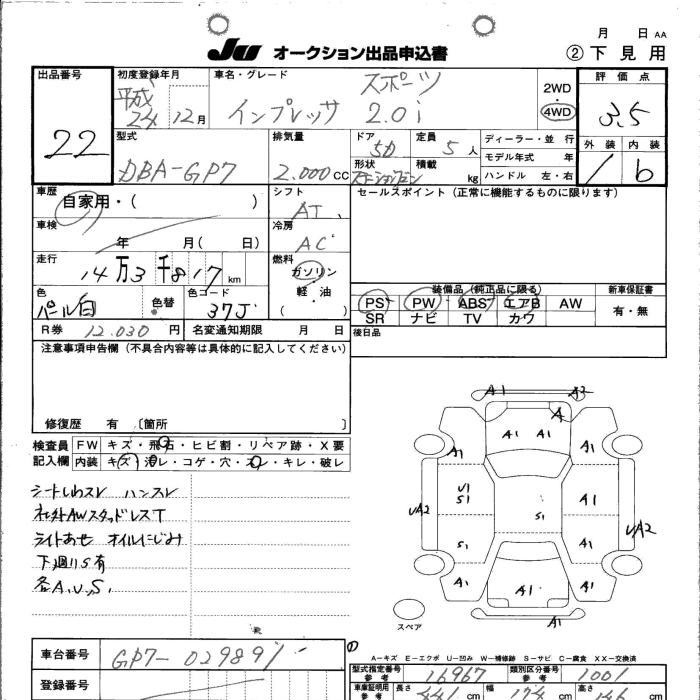 月 日 AA
JU オークション出品申込書 ②下見用
出品番号 22
初度登録年月 平成24 12月
車名・グレード スポーツ
インプレッサ 2.0i
2WD
4WD
評価点 3.5
外装 内装
6
型式 DBA-GP7
排気量 2.000cc
ドア 5D
定員 5人
ディーラー・並行
モデル年式 年
ハンドル 左・右
形状 ステーションワゴン
積載 kg
車歴 自家用・( )
シフト AT
セールスポイント (正常に機能するものに限ります)
車検 年 月( 日)
冷房 AC
走行 14万3千817km
燃料 ガソリン
軽・油
( )
色 パール白
色替
色コード 37J
装備品(純正品に限る)
PS PW ABS エアB AW
SR ナビ TV カワ
新車保証書
有・無
R券 12.030円
名変通知期限 月 日
後日品
注意事項申告欄(不具合内容等は具体的に記入してください)
修復歴 有 〔箇所 〕
検査員記入欄
FW キズ・飛石・ヒビ割・リペア跡・X要
内装 キズ・汚レ・コゲ・穴・スレ・キレ・破レ
シートしわスレ ハンスレ
社外AWスタッドレスT
ライトあせ オイルにじみ
下廻りS有
各A.U.S.
A1 A2
A
A1 A1
A1 A1
U1
S1
A1
UA2 S1 UA2
S1 A1
A1 A1 A1
A1
スペア
A-キズ E-エクボ U-凹み W-補修跡 S-サビ C-腐食 XX-交換済
車台番号 GP7-029891
型式指定番号 参考 16967
類別区分番号 参考 1001
登録番号
車庫証明用 参考
長さ cm 幅 cm 高さ cm